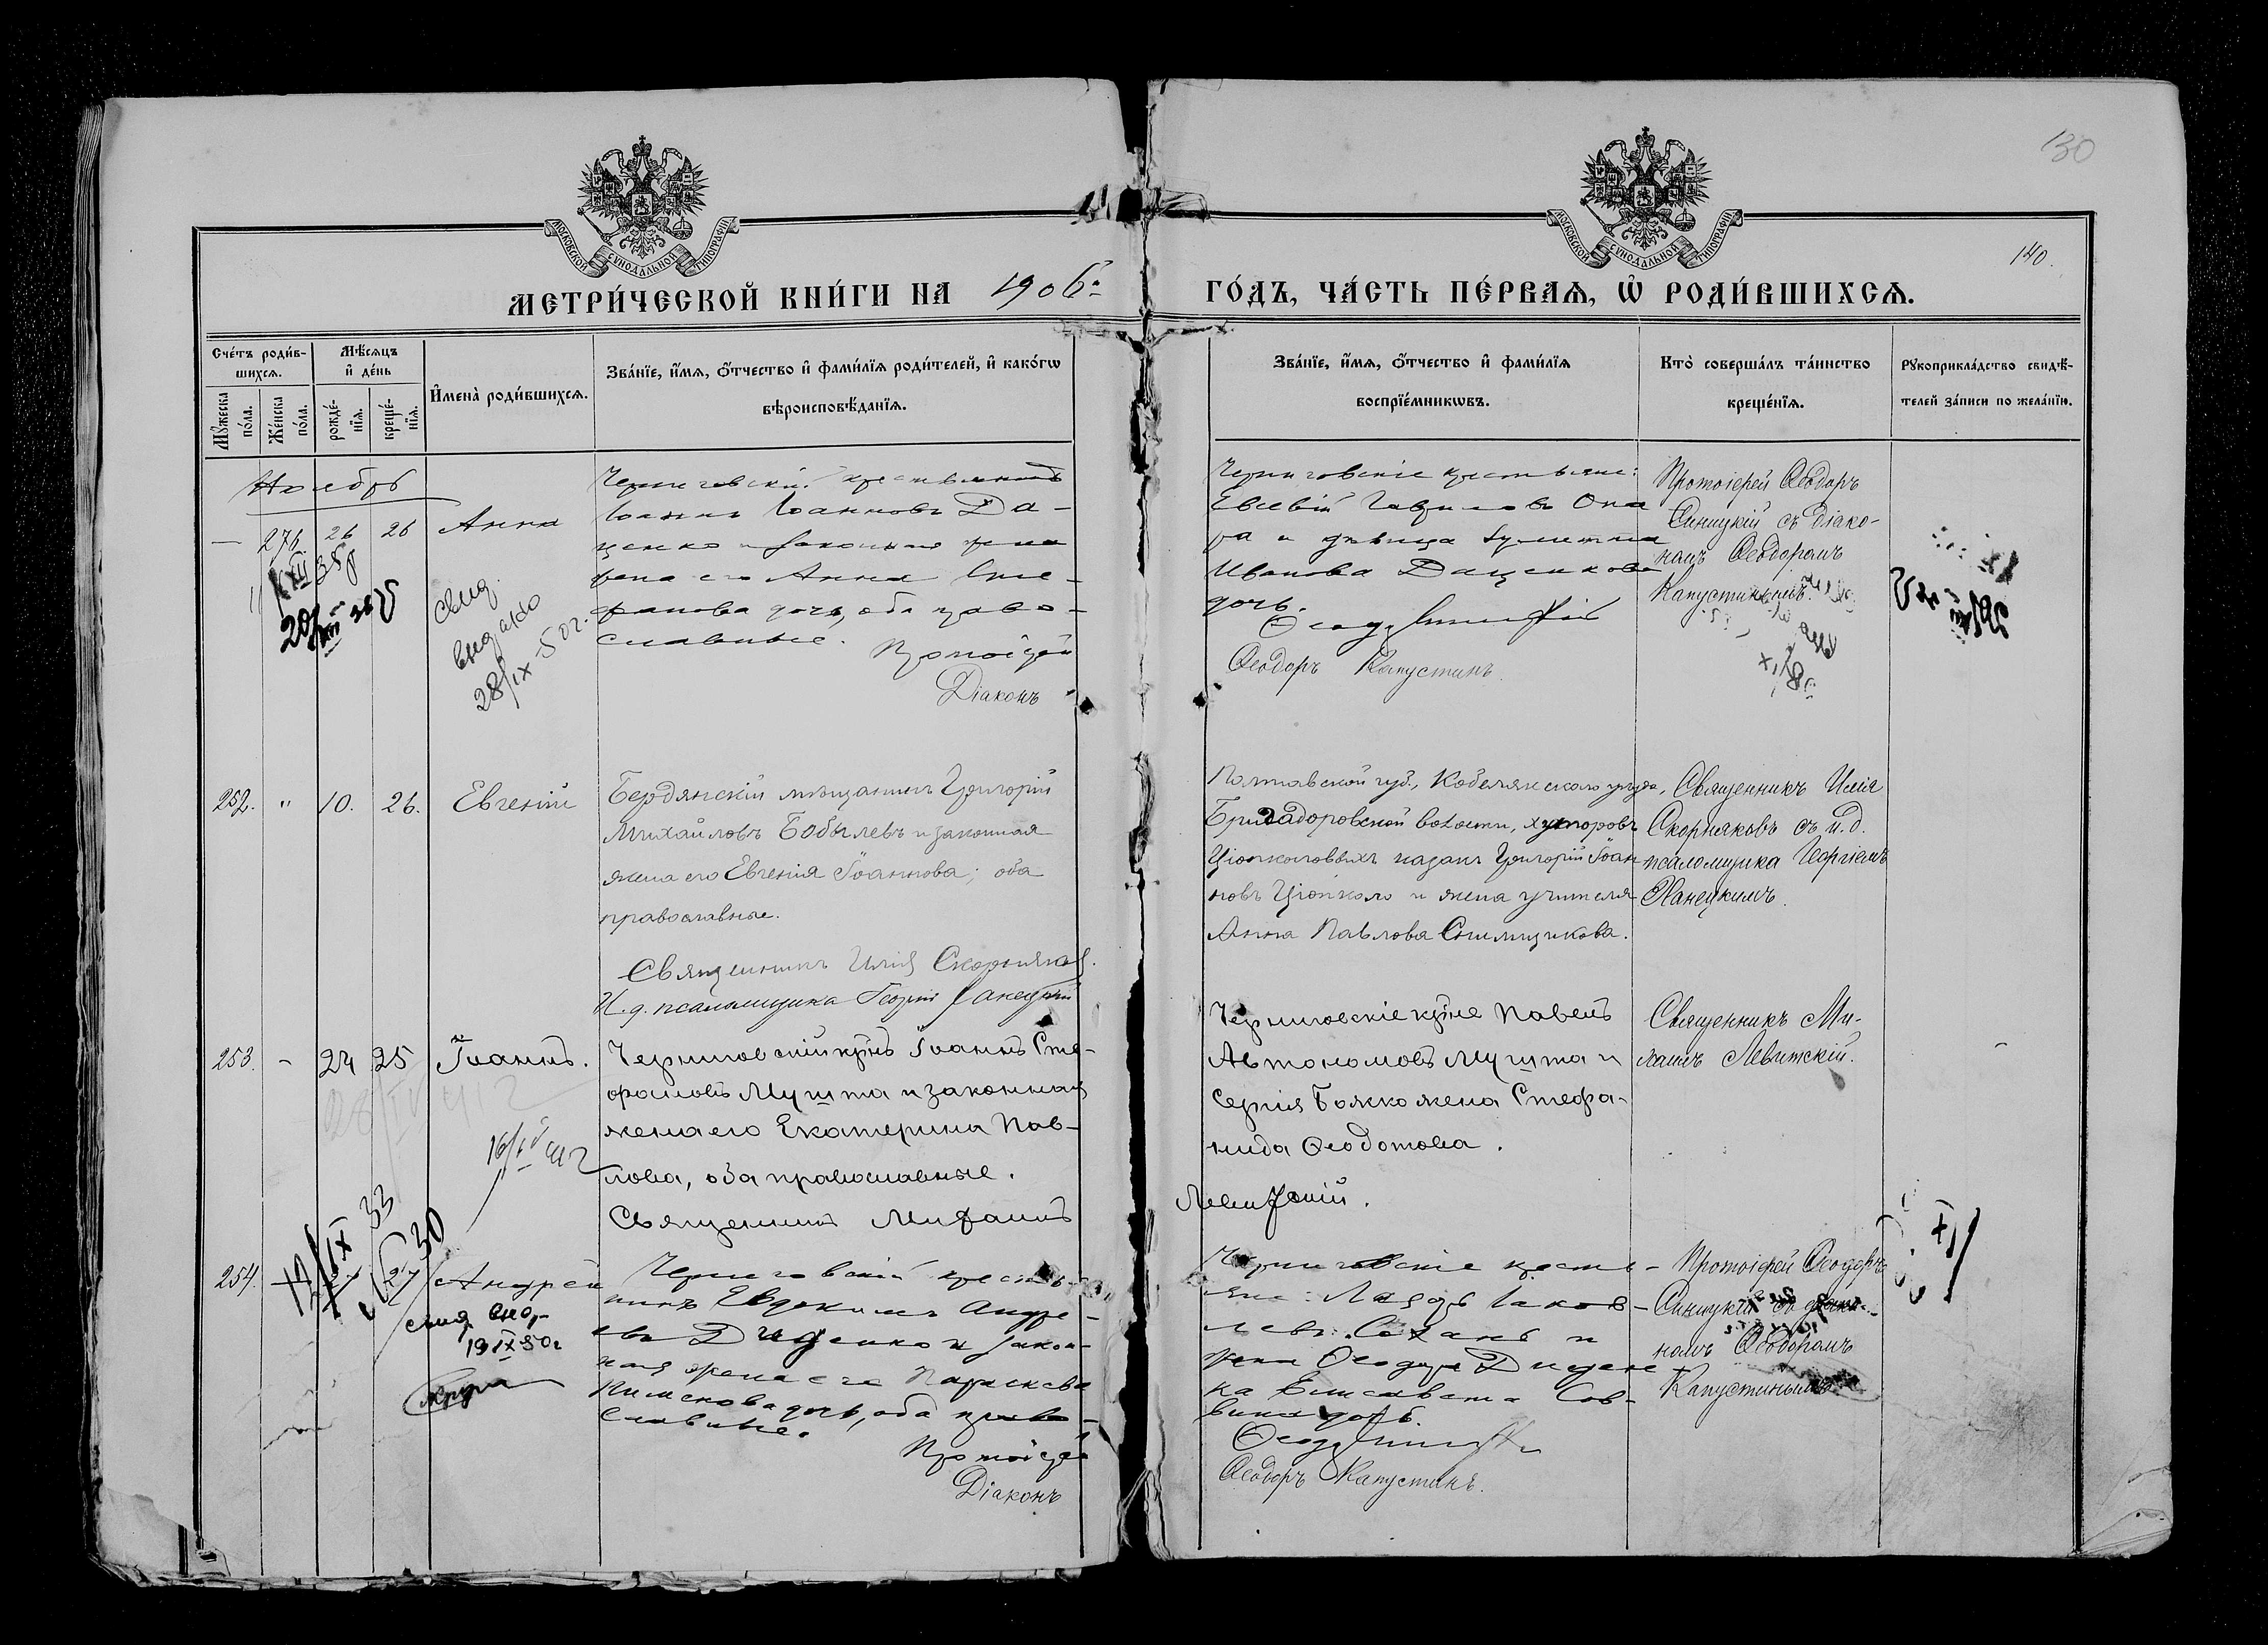 130
140.
МОСКОВСКОЙ СѴНОДАЛЬНОЙ ТИПОГРАФІИ
МОСКОВСКОЙ СѴНОДАЛЬНОЙ ТИПОГРАФІИ
МЕТРИ́ЧЕСКОЙ КНИ́ГИ НА 1906й
ГО́ДЪ, ЧА́СТЬ ПЕ́РВАѦ, Ѽ РОДИ́ВШИХСѦ.
Сче́тъ роди́в-
шихсѧ.
Мꙋ́жеска по́ла.
Же́нска по́ла.
Мѣ́сѧцъ
и҆ де́нь
рожде́-
нїѧ.
креще́-
нїѧ.
И҆мена̀ роди́вшихсѧ.
Зва́нїе, и҆́мѧ, ѻ҆́тчество и҆ фами́лїѧ роди́телей, и҆ како́гѡ
вѣроисповѣ́данїѧ.
Зва́нїе, и҆́мѧ, ѻ҆́тчество и҆ фами́лїѧ
воспрїе́мникѡвъ.
Кто̀ соверша́лъ та́инство
креще́нїѧ.
Рꙋкоприкла́дство свидѣ́-
телей за́писи по жела́нїю.
Ноябрь
— 276 26 26 Анна
Черниговскій крестьянинъ
Іоаннъ Іоанновъ Да-
ценко и законная
жена его Анна Сте-
фанова дочь, оба право-
славные.
Протоіерей
Діаконъ
Черниговскіе крестьяне:
Евсевій Гавриловъ Она
ра и дѣвица Іулитта
Иванова Даценкова
дочь.
Ѳеодоръ Капустинъ.
Протоіерей Ѳеодоръ
Синицкій съ діако-
номъ Ѳеодоромъ
Капустинымъ.
свид.
выдано
28/IX-50г.
252. " 10. 26. Евгеній
Бердянскій мѣщанинъ Григорій
Михайловъ Бобылевъ и законная
жена его Евгенія Іоаннова; оба
православные.
Священникъ Илія Скорняковъ.
И.д. псаломщика Георгій Ханецкій
Полтавской губ., Кобелякскаго уѣзда,
Бригадоровской волости, хуторовъ
Ціопкаловыхъ казакъ Григорій Іоан
новъ Ціопкало и жена учителя
Анна Павлова Снимщикова.
Священникъ Илія
Скорняковъ съ и.д.
псаломщика Георгіемъ
Ханецкимъ.
253. - 24 25 Іоаннъ.
Черниговскій кр-нъ Іоаннъ Сте-
фановъ Мушта и законная
жена его Екатерина Пав-
лова, оба православные.
Священникъ Михаилъ
Черниговскіе кр-не Павелъ
Автономовъ Мушта и
Сергія Божко жена Стефа-
нида Ѳеодотова.
Левитскій.
Священникъ Ми-
хаилъ Левитскій.
254. 27 Андрей
свид. выд.
19 IX 50г
Черниговскій крестья-
нинъ Евдокимъ Андре-
евъ Диденко и закон-
ная жена его Параскева
дочь, оба право-
славные.
Протоіерей
Діаконъ
Черниговскіе кресть-
яне: Лазарь Іаков-
левъ Сохань и
жена Ѳеодора Диден-
ка Елисавета Сав-
вина дочь.
Ѳеодоръ Капустинъ.
Протоіерей Ѳеодоръ
Синицкій съ діако-
номъ Ѳеодоромъ
Капустинымъ